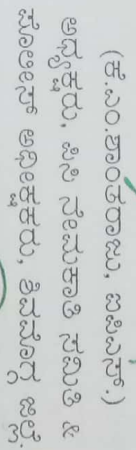 (ಕೆ.ಎಂ.ಶಾಂತರಾಜು, ಐಪಿಎಸ್.)
ಅಧ್ಯಕ್ಷರು, ಪಿಸಿ ನೇಮಕಾತಿ ಸಮಿತಿ &
ಪೊಲೀಸ್ ಅಧೀಕ್ಷಕರು, ಶಿವಮೊಗ್ಗ ಜಿಲ್ಲೆ.